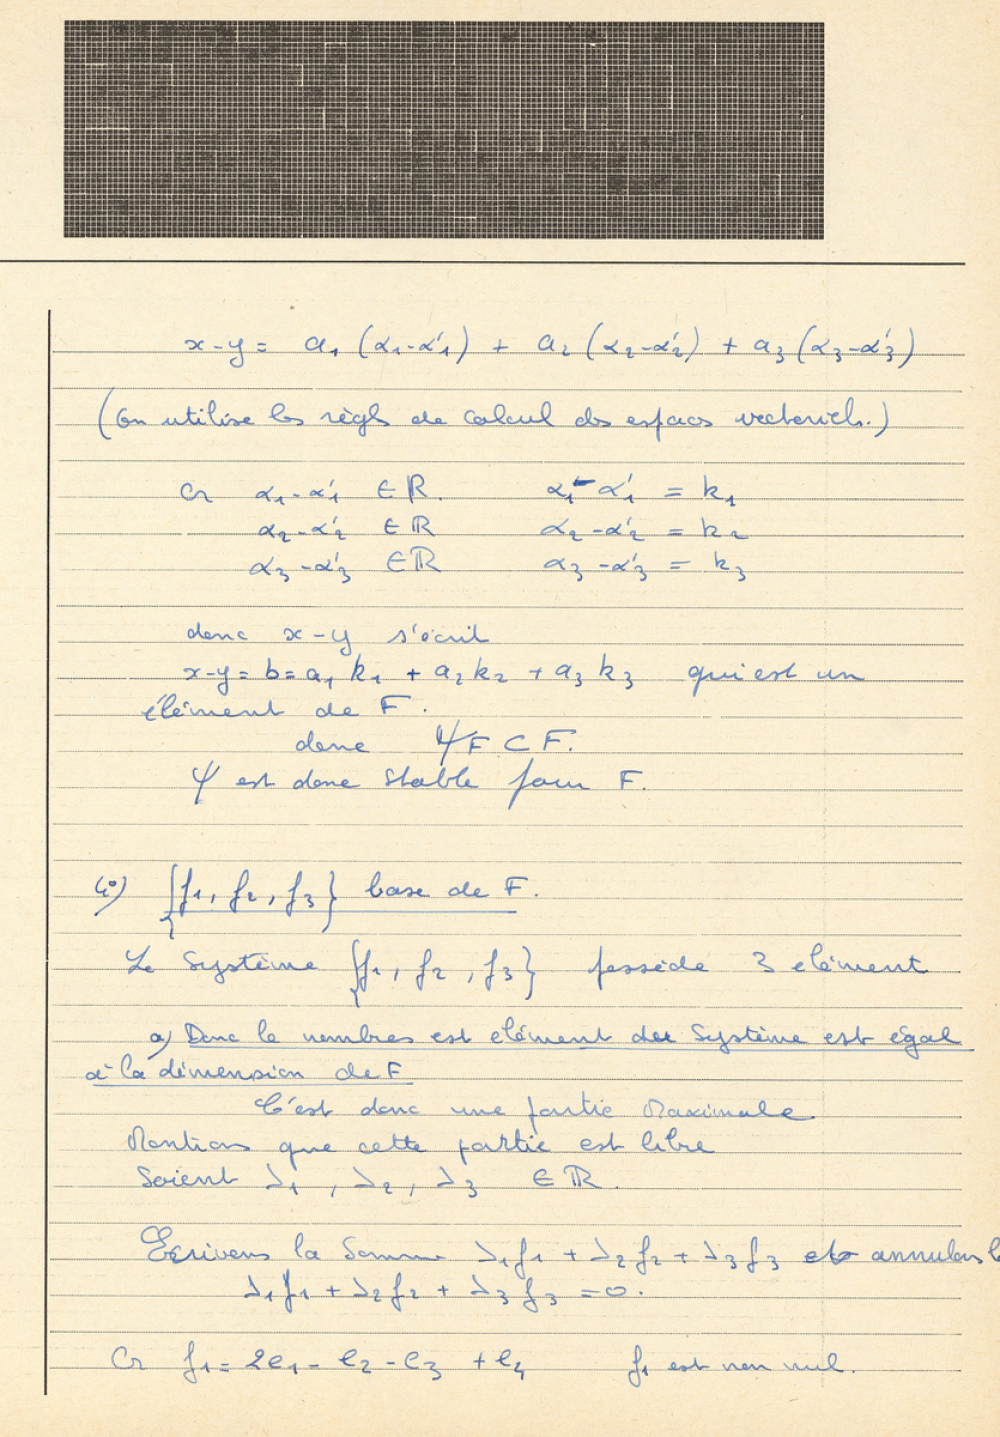 x-y = a₁ (α₁-α'₁) + a₂ (α₂-α'₂) + a₃ (α₃-α'₃)
(on utilise les règls de calcul des espaces vectoriels.)
Or α₁-α'₁ ∈ ℝ. α₁-α'₁ = k₁
α₂-α'₂ ∈ ℝ α₂-α'₂ = k₂
α₃-α'₃ ∈ ℝ α₃-α'₃ = k₃
donc x-y s'écrit
x-y = b = a₁ k₁ + a₂ k₂ + a₃ k₃ qui est un
élément de F.
donc ψF ⊂ F.
ψ est donc stable pour F.
4°) {f₁, f₂, f₃} base de F.
Le système {f₁, f₂, f₃} possède 3 elément
a) Donc le nombres est elément des Système est egal
à la dimension de F
C'est donc une partie Maximale
Montrons que cette partie est libre
Soient λ₁, λ₂, λ₃ ∈ ℝ.
Ecrivons la Somme λ₁f₁ + λ₂f₂ + λ₃f₃ et annulons l
λ₁f₁ + λ₂f₂ + λ₃f₃ = 0.
Or f₁ = 2e₁ - e₂ - e₃ + e₄ f₁ est non nul.